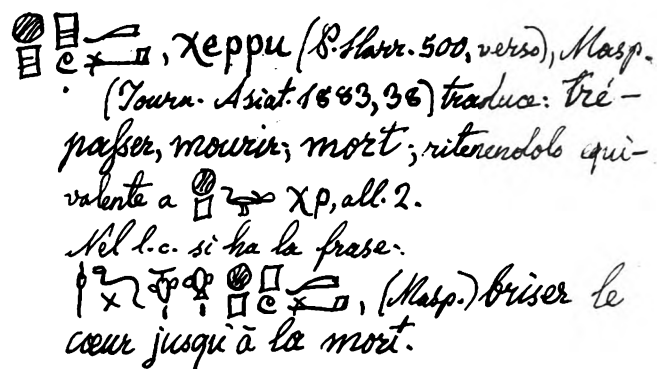 , χeppu (P. Harr. 500, verso), Masp.
(Journ. Asiat. 1883, 38) traduce: tré-
passer, mourir; mort; ritenendolo equi-
valente a χp, all. 2.
Nel l.c. si ha la frase:
, (Masp.) briser le
cœur jusqu'à la mort.